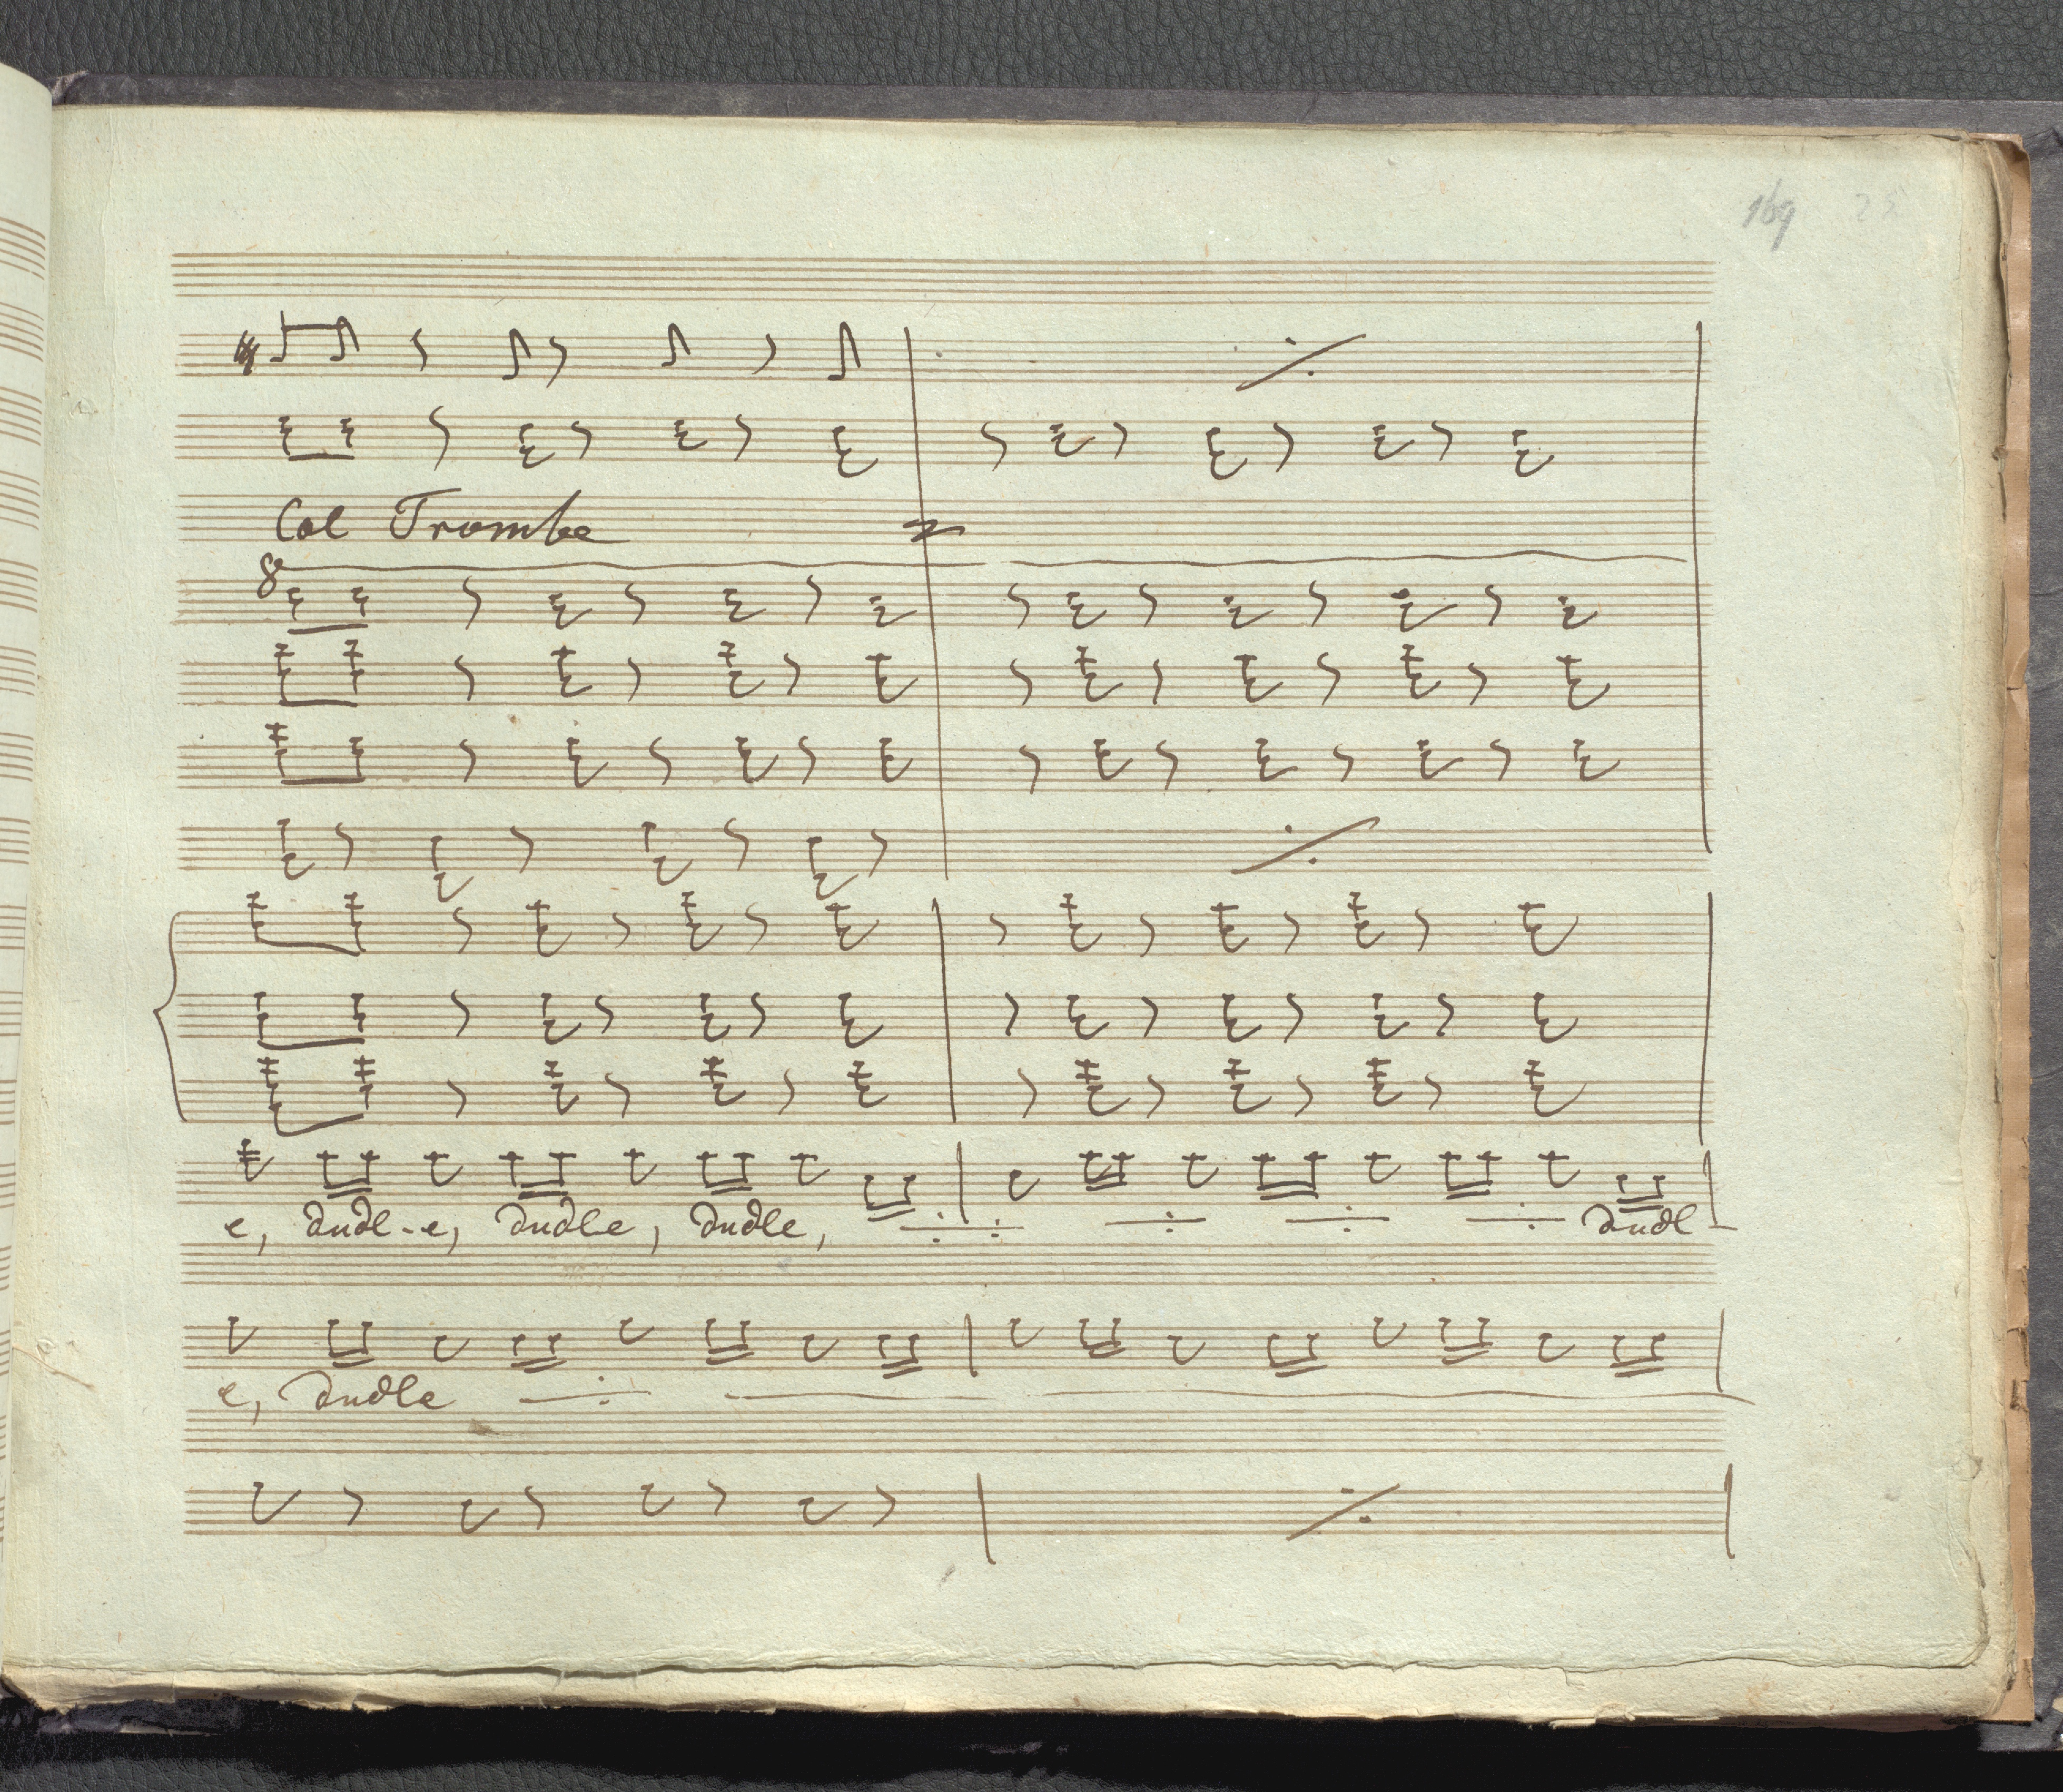 169 25
Col Trombe
8
e, dudl-e, dudle, dudle, dudl
e, dudle